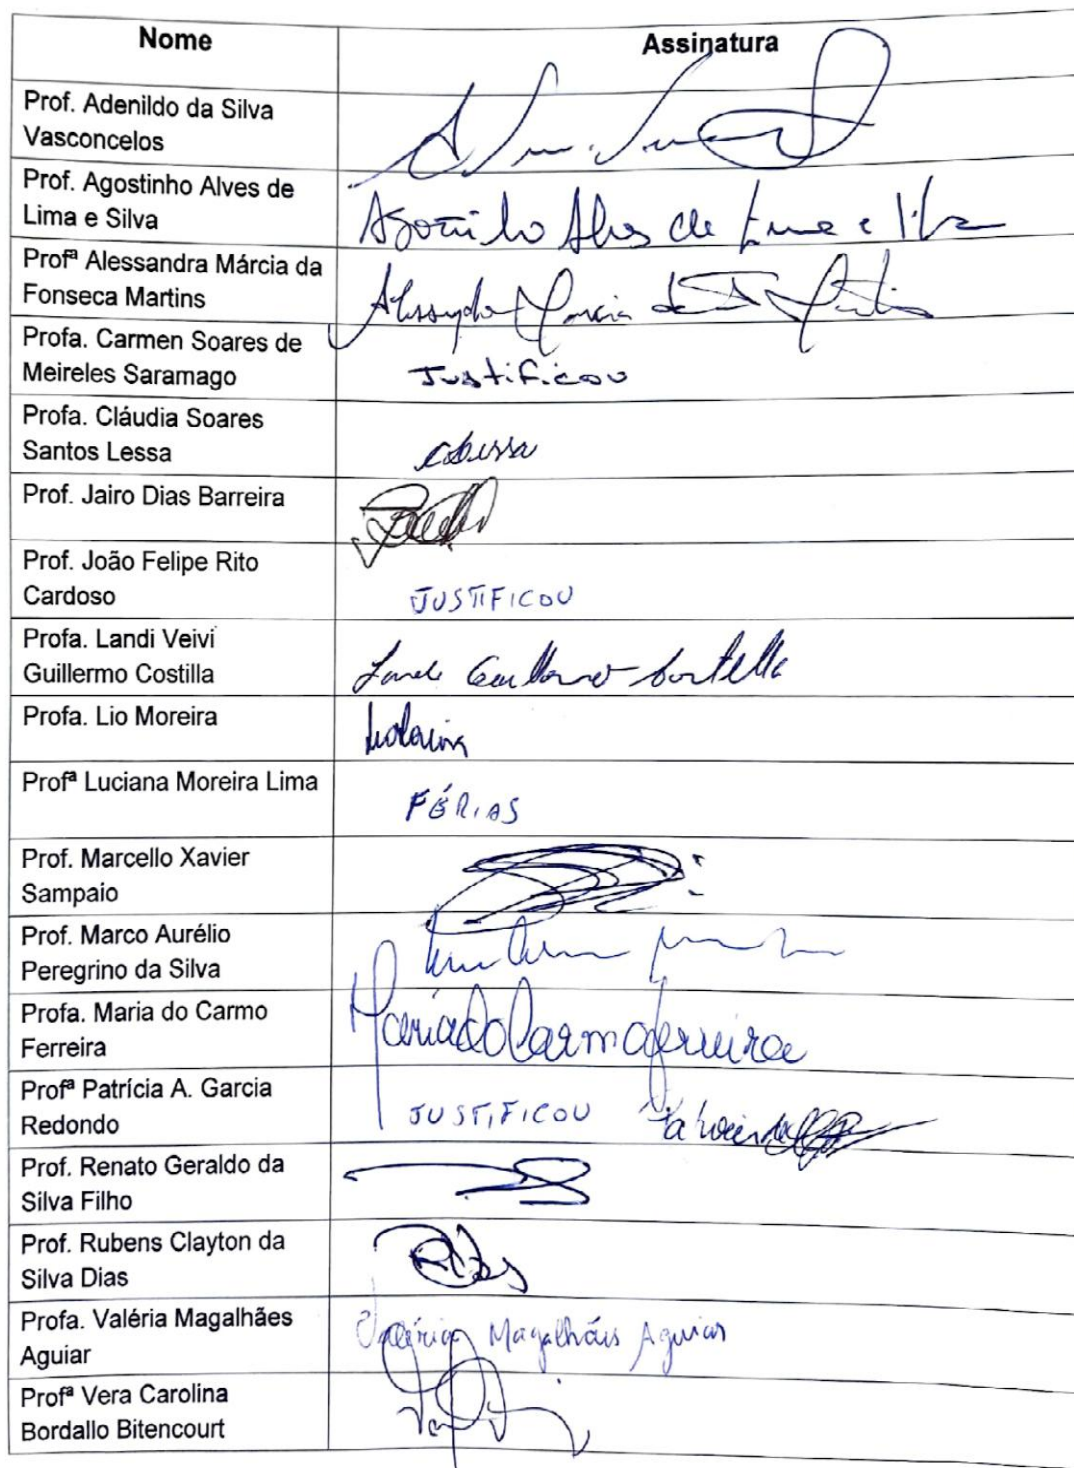 Nome Assinatura
Prof. Adenildo da Silva
Vasconcelos
Prof. Agostinho Alves de
Lima e Silva
Agostinho Alves de Lima e Silva
Profª Alessandra Márcia da
Fonseca Martins
Profa. Carmen Soares de
Meireles Saramago
Justificou
Profa. Cláudia Soares
Santos Lessa
Prof. Jairo Dias Barreira
Prof. João Felipe Rito
Cardoso
JUSTIFICOU
Profa. Landi Veivi
Guillermo Costilla
Profa. Lio Moreira
Profª Luciana Moreira Lima
FÉRIAS
Prof. Marcello Xavier
Sampaio
Prof. Marco Aurélio
Peregrino da Silva
Profa. Maria do Carmo
Ferreira
Maria do Carmo Ferreira
Profª Patrícia A. Garcia
Redondo
JUSTIFICOU
Prof. Renato Geraldo da
Silva Filho
Prof. Rubens Clayton da
Silva Dias
Profa. Valéria Magalhães
Aguiar
Valéria Magalhães Aguiar
Profª Vera Carolina
Bordallo Bitencourt